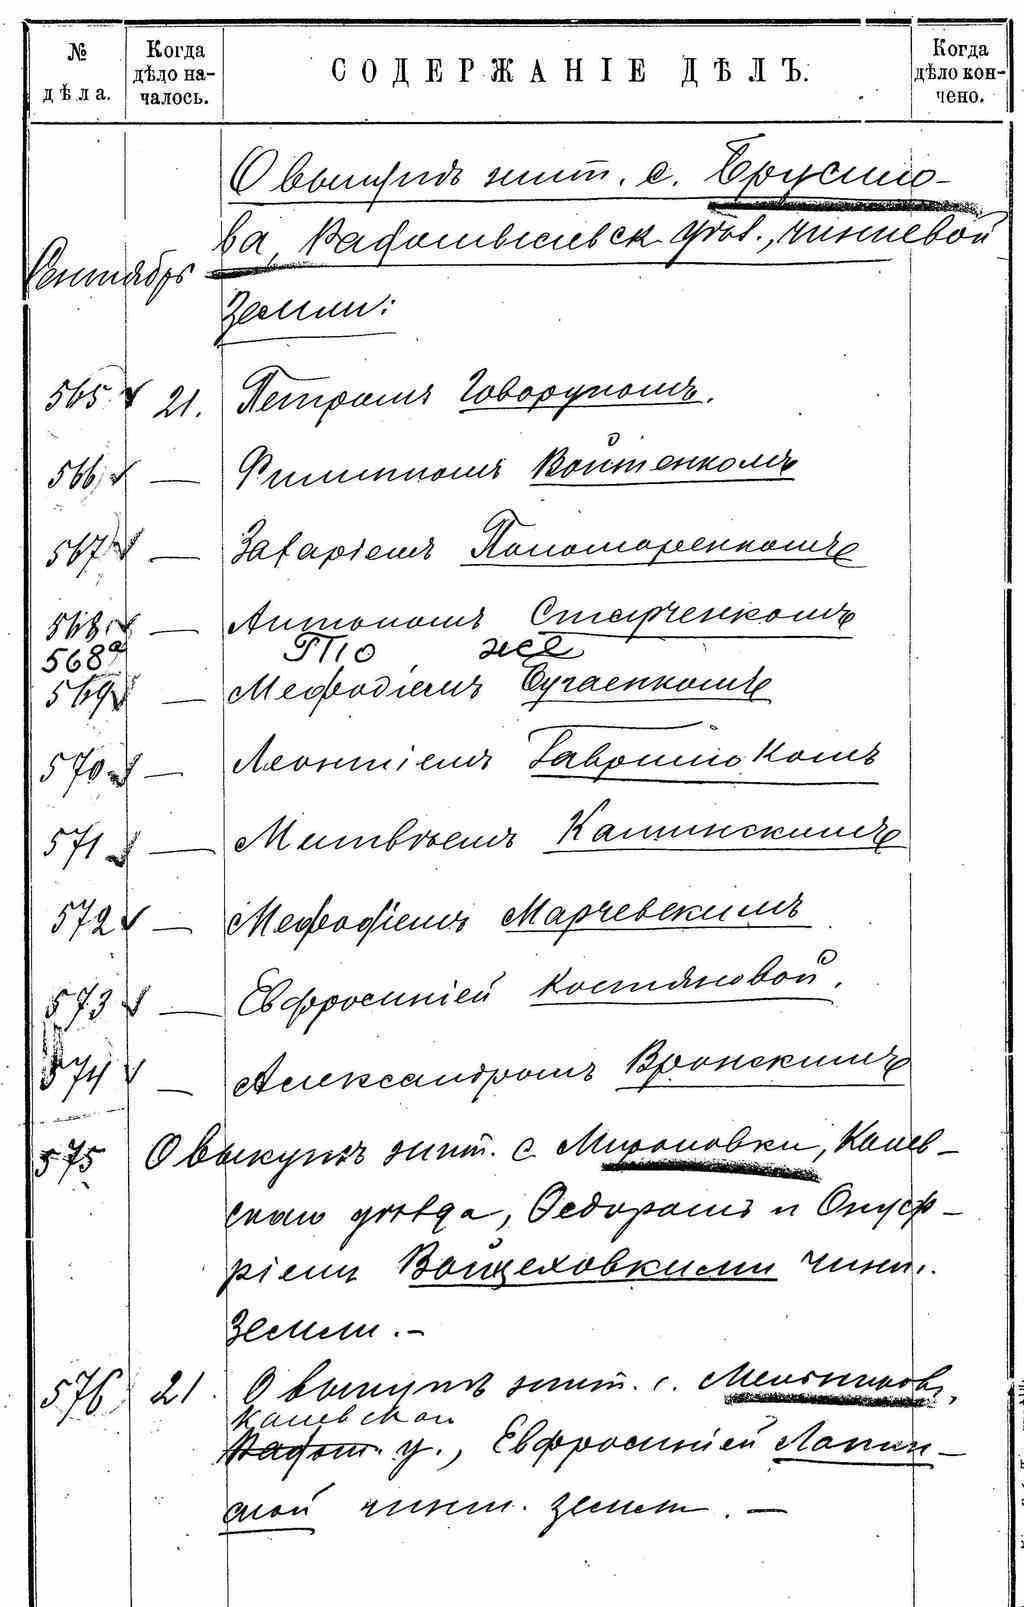 № дѣла. Когда дѣло началось. СОДЕРЖАНІЕ ДѢЛЪ. Когда дѣло кончено.
О выкупѣ жит. с. Брусило-
ва, Радомысльск. уѣз., чиншевой
Сентябрь
земли:
565 21. Петромъ Говоруномъ.
566 — Филиппомъ Войтенкомъ
567 — Захаріемъ Пономаренкомъ
568 — Антономъ Старченкомъ
568а То же
569 — Мефодіемъ Бугаенкомъ
570 — Леонтіемъ Гаврилюкомъ
571 — Матвѣемъ Каминскимъ
572 — Мефодіемъ Марчевскимъ
573 — Евфросиніей Костяновой.
574 — Александромъ Вронскимъ
575 О выкупѣ жит. с. Мироновки, Канев-
скаго уѣзда, Ѳедоромъ и Онуф-
ріемъ Войцеховкими чинш.
земли. —
576 21. О выкупѣ жит. с. Мельников,
Каневской
Радом. у., Евфросиніей Лапин-
ской чинш. земли. —